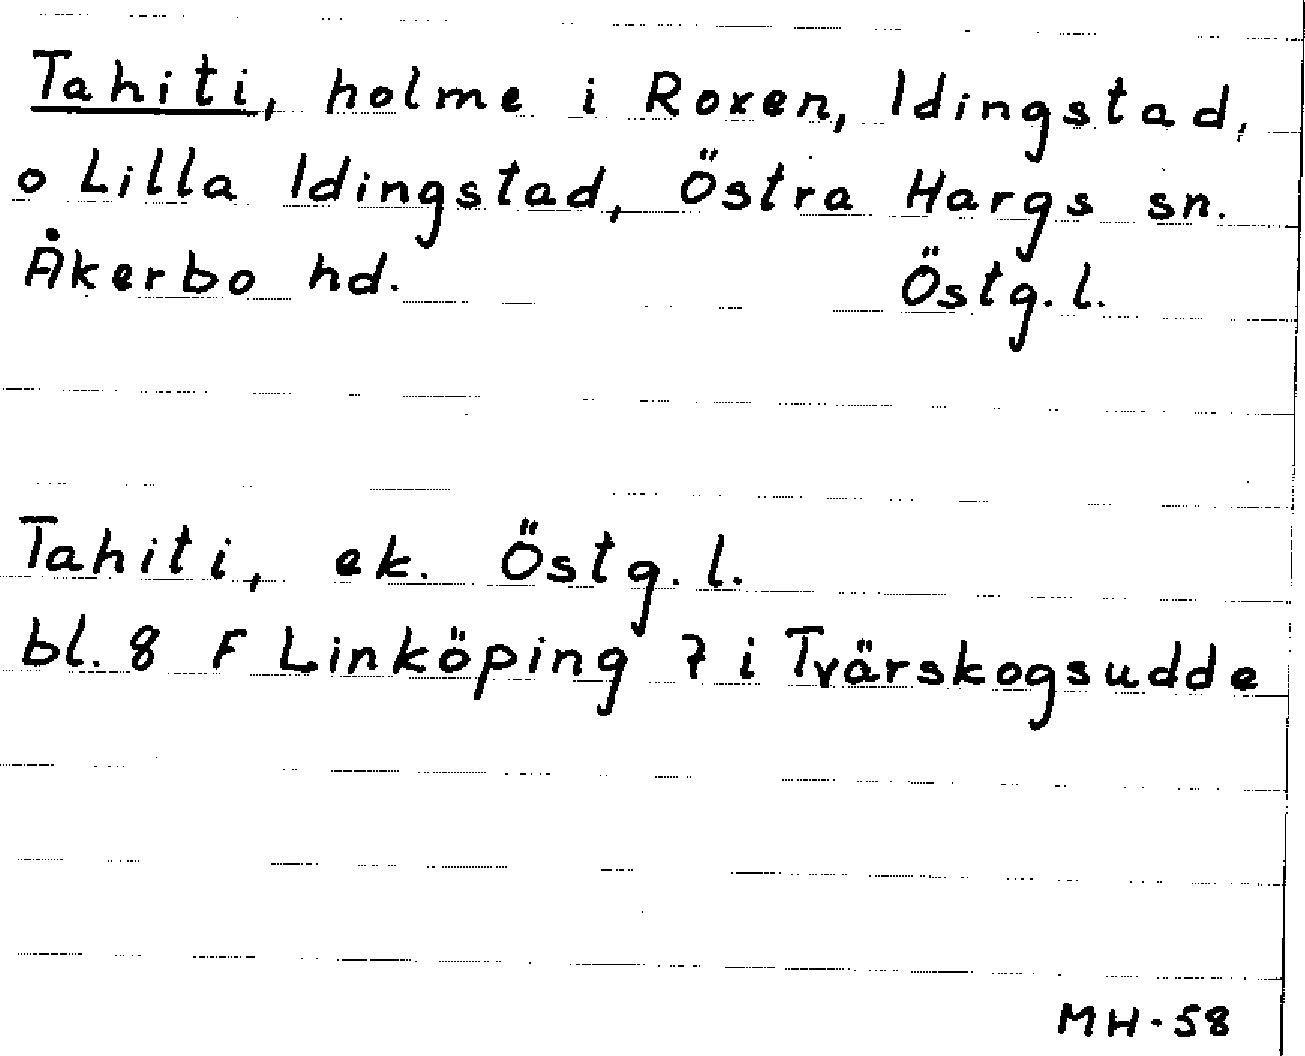 Tahiti, holme i Roxen, Idingstad,
o Lilla Idingstad, Östra Hargs sn.
Åkerbo hd. Östg. l.
Tahiti, ek. Östg. l.
bl. 8 F Linköping 7 i Tvärskogsudde
MH-58